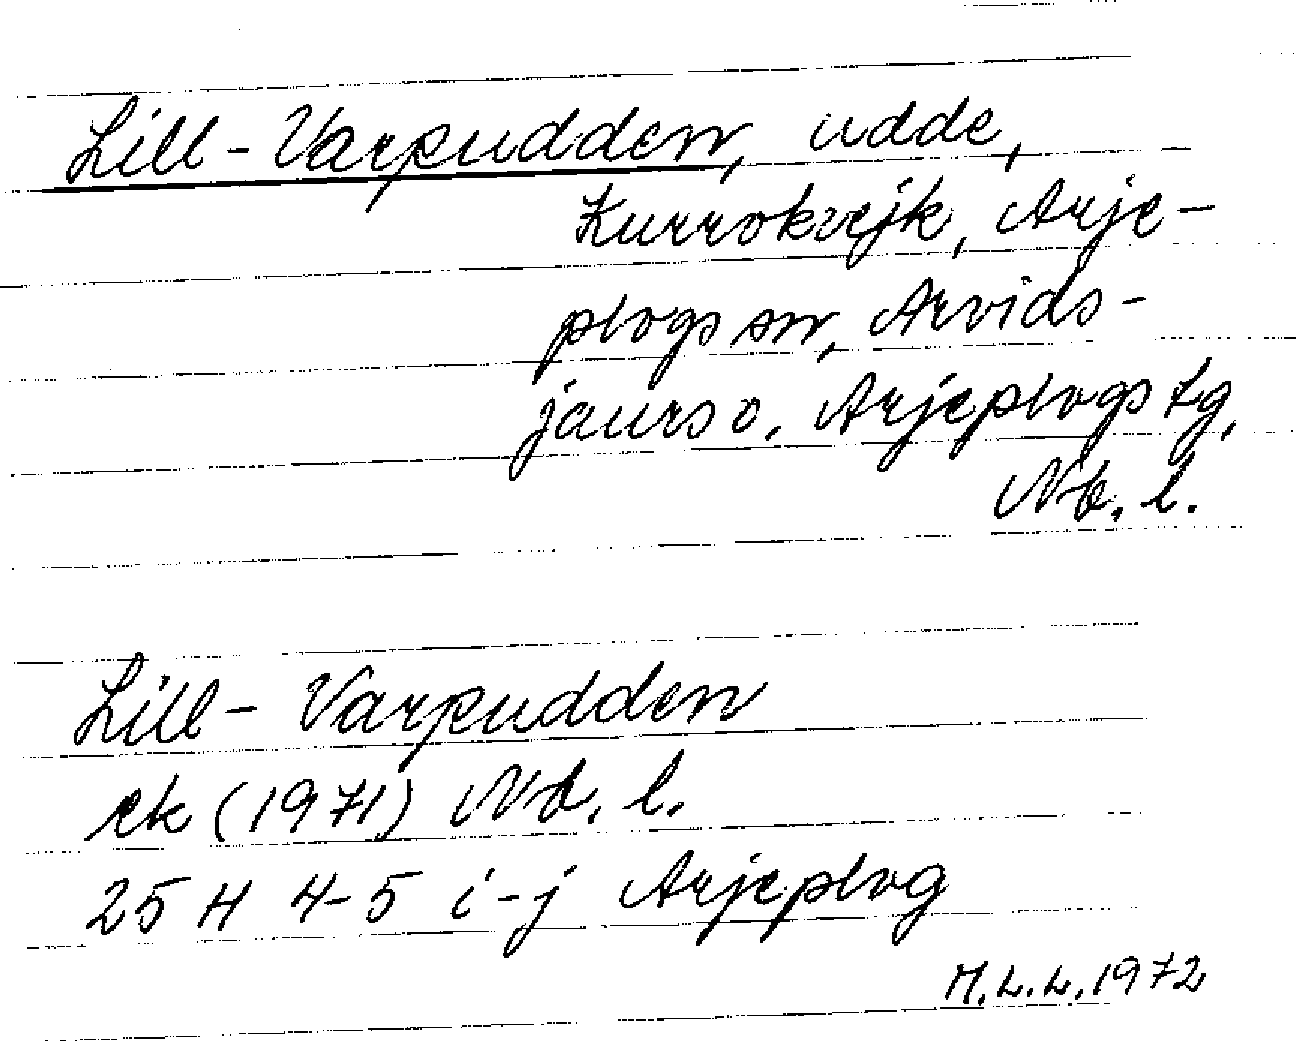 Lill-Varpudden, udde,
Kurrokvejk, Arje-
plogs sn, Arvids-
jaurs o. Arjeplogs tg,
Nb. l.
Lill-Varpudden
ek (1971) Nb. l.
25 H 4-5 i-j Arjeplog
M.L.L. 1972